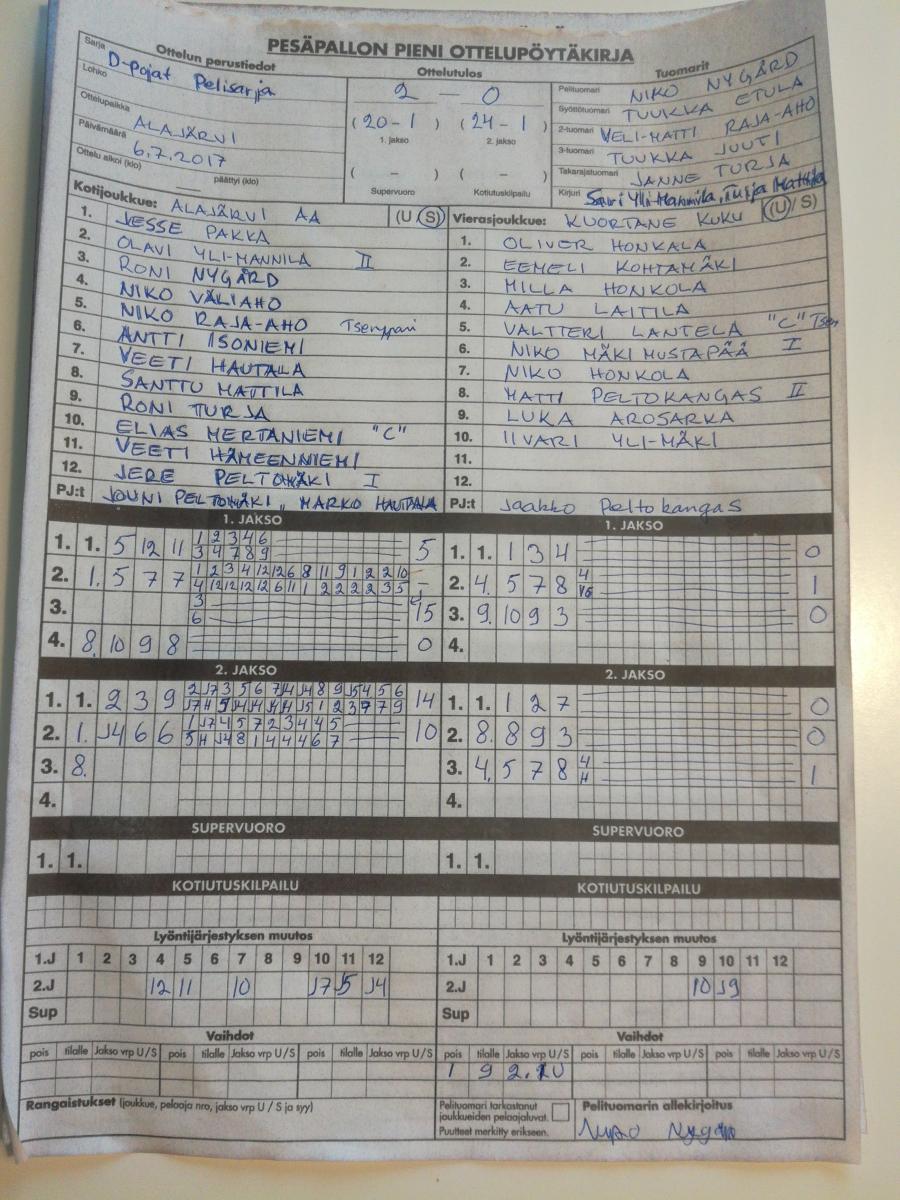 PESÄPALLON PIENI OTTELUPÖYTÄKIRJA
Ottelun perustiedot
Sarja D-pojat Pelisarja
Lohko
Ottelupaikka ALAJÄRVI
Päivämäärä 6.7.2017
Ottelu alkoi (klo) päättyi (klo)
Ottelutulos
2 – 0
(20 - 1) (24 - 1)
1. jakso 2. jakso
( - ) ( - )
Supervuoro Kotiutuskilpailu
Tuomarit
Pelituomari NIKO NYGÅRD
Syöttötuomari TUUKKA ETULA
2-tuomari VELI-MATTI RAJA-AHO
3-tuomari TUUKKA JUUTI
Takarajatuomari JANNE TURJA
Kirjuri Turja Mattila
Kotijoukkue: ALAJÄRVI AA (U/S)
1. JESSE PAKKA
2. OLAVI YLI-MANNILA II
3. RONI NYGÅRD
4. NIKO VÄLIAHO
5. NIKO RAJA-AHO Tsemppari
6. ANTTI ISONIEMI
7. VEETI HAUTALA
8. SANTTU MATTILA
9. RONI TURJA
10. ELIAS MERTANIEMI "C"
11. VEETI HÄMEENNIEMI
12. JERE PELTOMÄKI I
PJ:t JOUNI PELTOMÄKI, MARKO HAUTALA
Vierasjoukkue: KUORTANE KUKU (U/S)
1. OLIVER HONKALA
2. EEMELI KOHTAMÄKI
3. MILLA HONKOLA
4. AATU LAITILA
5. VALTTERI LANTELA "C" Tsem
6. NIKO MÄKIMUSTAPÄÄ I
7. NIKO HONKOLA
8. MATTI PELTOKANGAS II
9. LUKA AROSARKA
10. IIVARI YLI-MÄKI
11.
12.
PJ:t Jaakko Peltokangas
1. JAKSO
1. 1. 5 12 11 1 2 3 4 6 5
3 4 7 8 9
2. 1. 5 7 7 1 2 3 4 12 12 6 8 11 9 1 2 2 10 -
4 12 12 12 12 6 11 1 2 2 2 2 3 5
3. 3 15
6
4. 8. 10 9 8 0
1. JAKSO
1. 1. 1 3 4 0
2. 4. 5 7 8 4 1
3. 9. 10 9 3 0
4.
2. JAKSO
1. 1. 2 3 9 14
2. 1. 14 6 6 1 17 4 5 7 2 3 4 4 5 10
5 14 8 1 4 4 4 6 7
3. 8.
4.
2. JAKSO
1. 1. 1 2 7 0
2. 8. 8 9 3 0
3. 4. 5 7 8 4 1
4.
SUPERVUORO
1. 1.
SUPERVUORO
1. 1.
KOTIUTUSKILPAILU
KOTIUTUSKILPAILU
Lyöntijärjestyksen muutos
1.J 1 2 3 4 5 6 7 8 9 10 11 12
2.J 12 11 10 17 5 14
Sup
Lyöntijärjestyksen muutos
1.J 1 2 3 4 5 6 7 8 9 10 11 12
2.J 10 19
Sup
Vaihdot
pois tilalle Jakso vrp U/S pois tilalle Jakso vrp U/S pois tilalle Jakso vrp U/S
Vaihdot
pois tilalle Jakso vrp U/S pois tilalle Jakso vrp U/S pois tilalle Jakso vrp U/S
1 9 2. 1U
Rangaistukset (joukkue, pelaaja nro, jakso vrp U / S ja syy)
Pelituomari tarkastanut
joukkueiden pelaajaluvat.
Puutteet merkitty erikseen.
Pelituomarin allekirjoitus